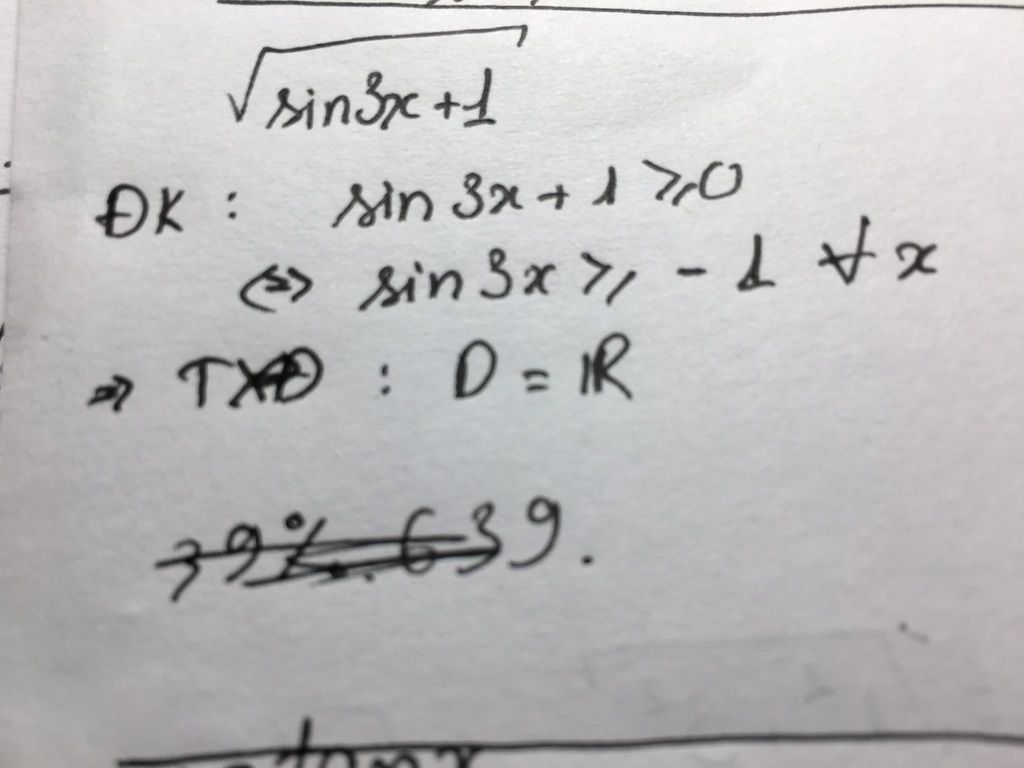 √sin3x+1
ĐK : sin 3x + 1 ≥ 0
⇔ sin 3x ≥ - 1 ∀ x
⇒ TXĐ : D = ℝ
39%.639.